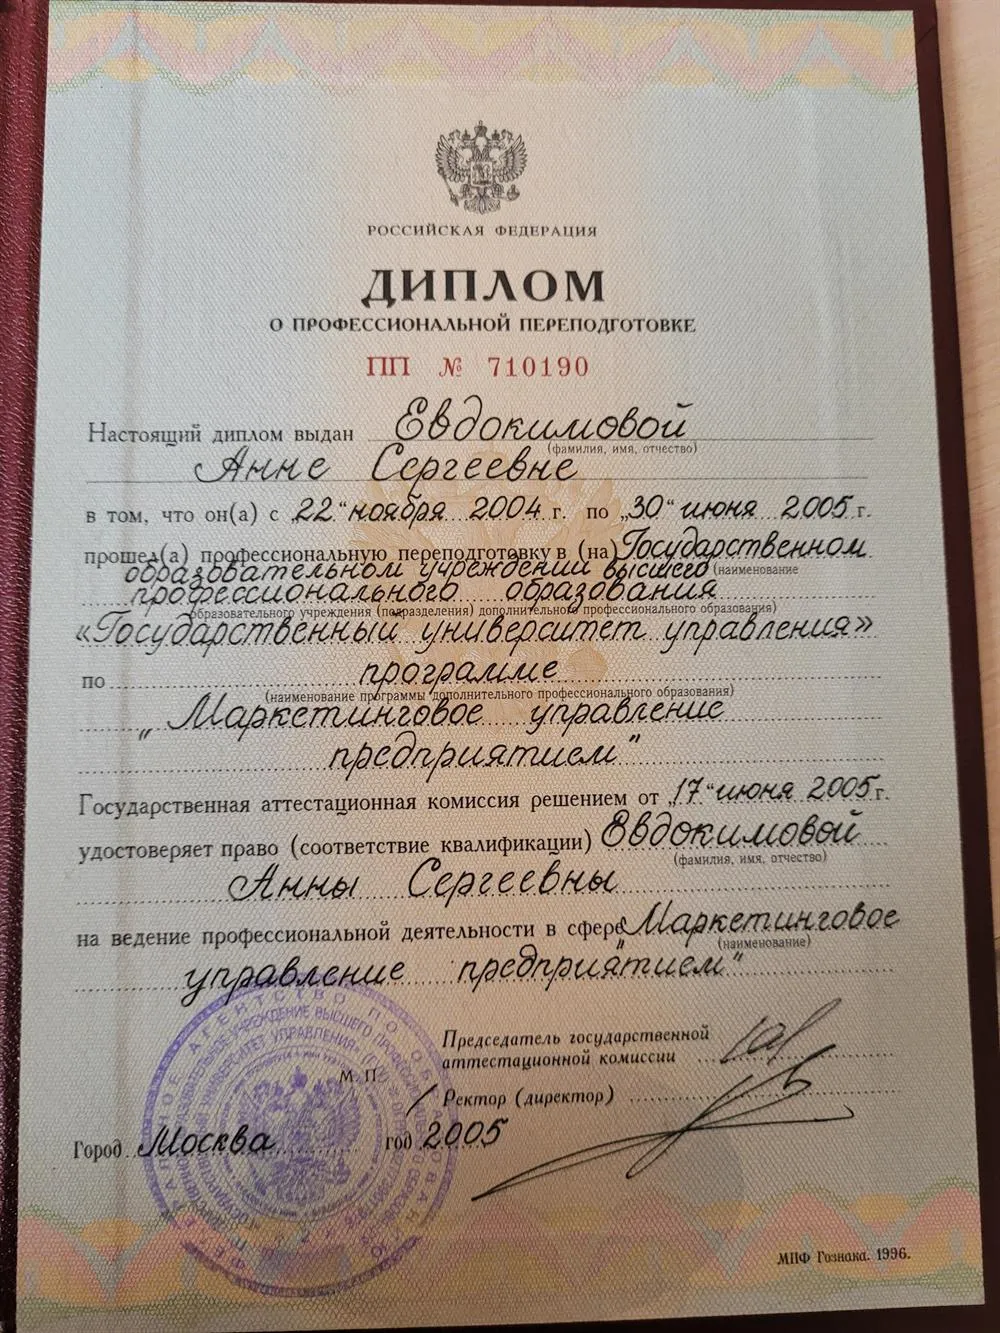 РОССИЙСКАЯ ФЕДЕРАЦИЯ
ДИПЛОМ
О ПРОФЕССИОНАЛЬНОЙ ПЕРЕПОДГОТОВКЕ
ПП № 710190
Настоящий диплом выдан Евдокимовой
(фамилия, имя, отчество)
Анне Сергеевне
в том, что он(а) с „22“ ноября 2004 г. по „30“ июня 2005 г.
прошел(а) профессиональную переподготовку в (на) Государственном
образовательном учреждении высшего (наименование
профессионального образования
образовательного учреждения (подразделения) дополнительного профессионального образования)
«Государственный университет управления»
по программе
(наименование программы дополнительного профессионального образования)
„Маркетинговое управление
предприятием“
Государственная аттестационная комиссия решением от „17“ июня 2005 г.
удостоверяет право (соответствие квалификации) Евдокимовой
(фамилия, имя, отчество)
Анны Сергеевны
на ведение профессиональной деятельности в сфере „Маркетинговое
(наименование)
управление предприятием“
Председатель государственной
аттестационной комиссии
М. П.
Ректор (директор)
Город Москва год 2005
ФЕДЕРАЛЬНОЕ АГЕНТСТВО ПО ОБРАЗОВАНИЮ
МПФ Гознака. 1996.